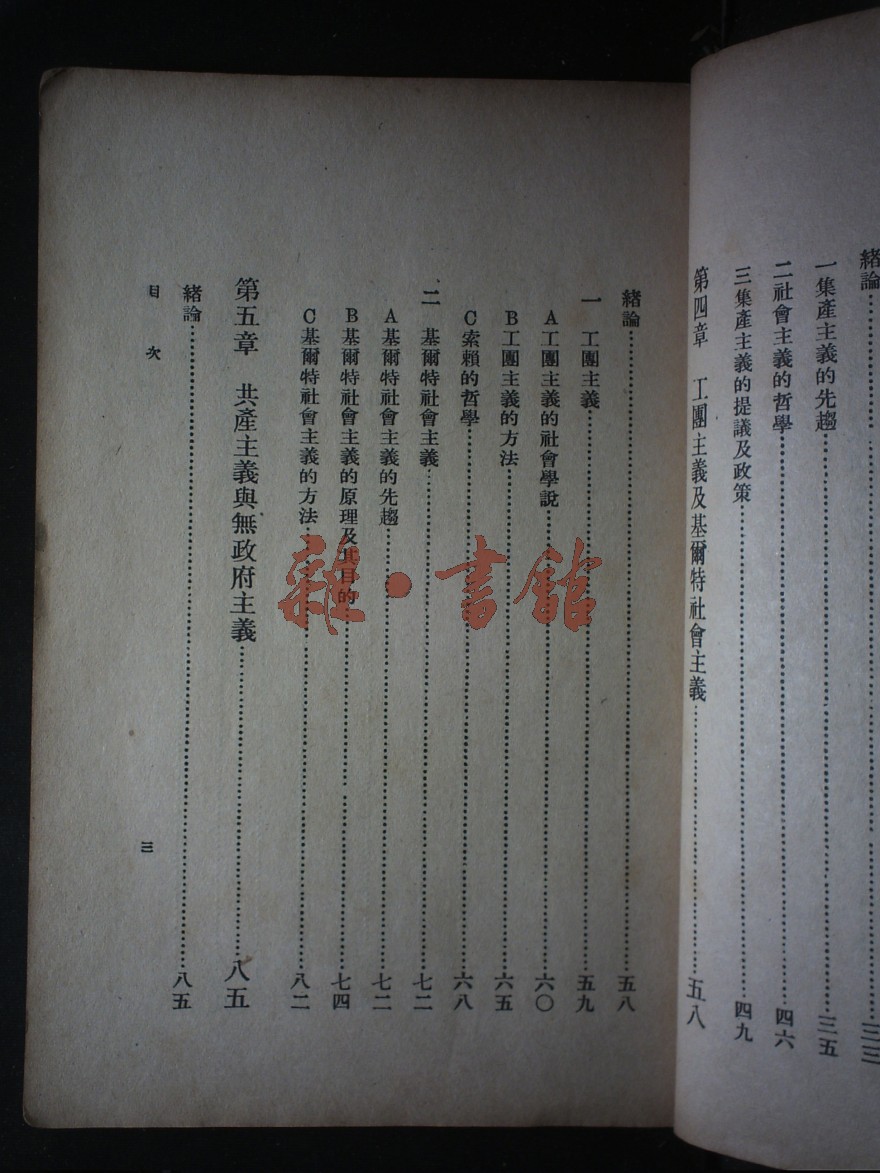 緒論……三三
一集產主義的先趨……三五
二社會主義的哲學……四六
三集產主義的提議及政策……四九
第四章 工團主義及基爾特社會主義……五八
緒論……五八
一 工團主義……五九
A工團主義的社會學說……六〇
B工團主義的方法……六五
C索賴的哲學……六八
二 基爾特社會主義……七二
A基爾特社會主義的先趨……七二
B基爾特社會主義的原理及其目的……七四
C基爾特社會主義的方法……八二
第五章 共產主義與無政府主義……八五
緒論……八五
目次
三
雜·書館